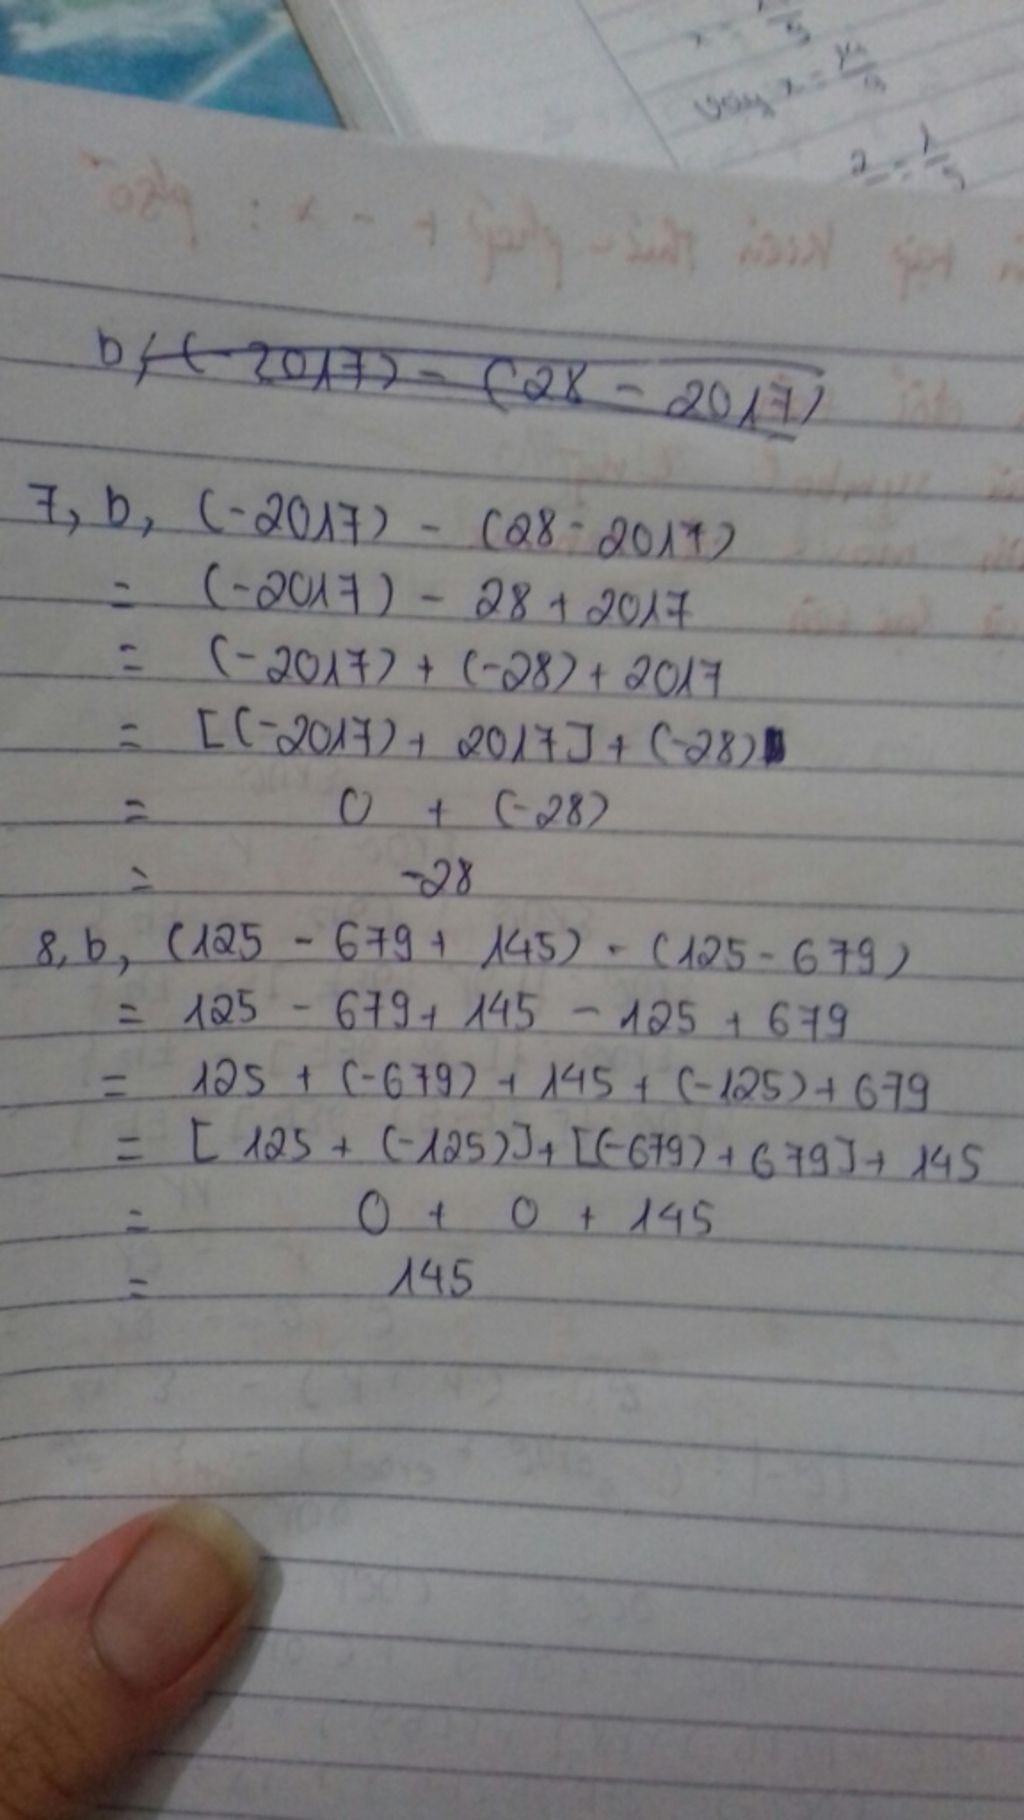 b, (-2017) - (28 - 2017)
7, b, (-2017) - (28 - 2017)
= (-2017) - 28 + 2017
= (-2017) + (-28) + 2017
= [(-2017) + 2017] + (-28)
= 0 + (-28)
= -28
8, b, (125 - 679 + 145) - (125 - 679)
= 125 - 679 + 145 - 125 + 679
= 125 + (-679) + 145 + (-125) + 679
= [125 + (-125)] + [(-679) + 679] + 145
= 0 + 0 + 145
= 145